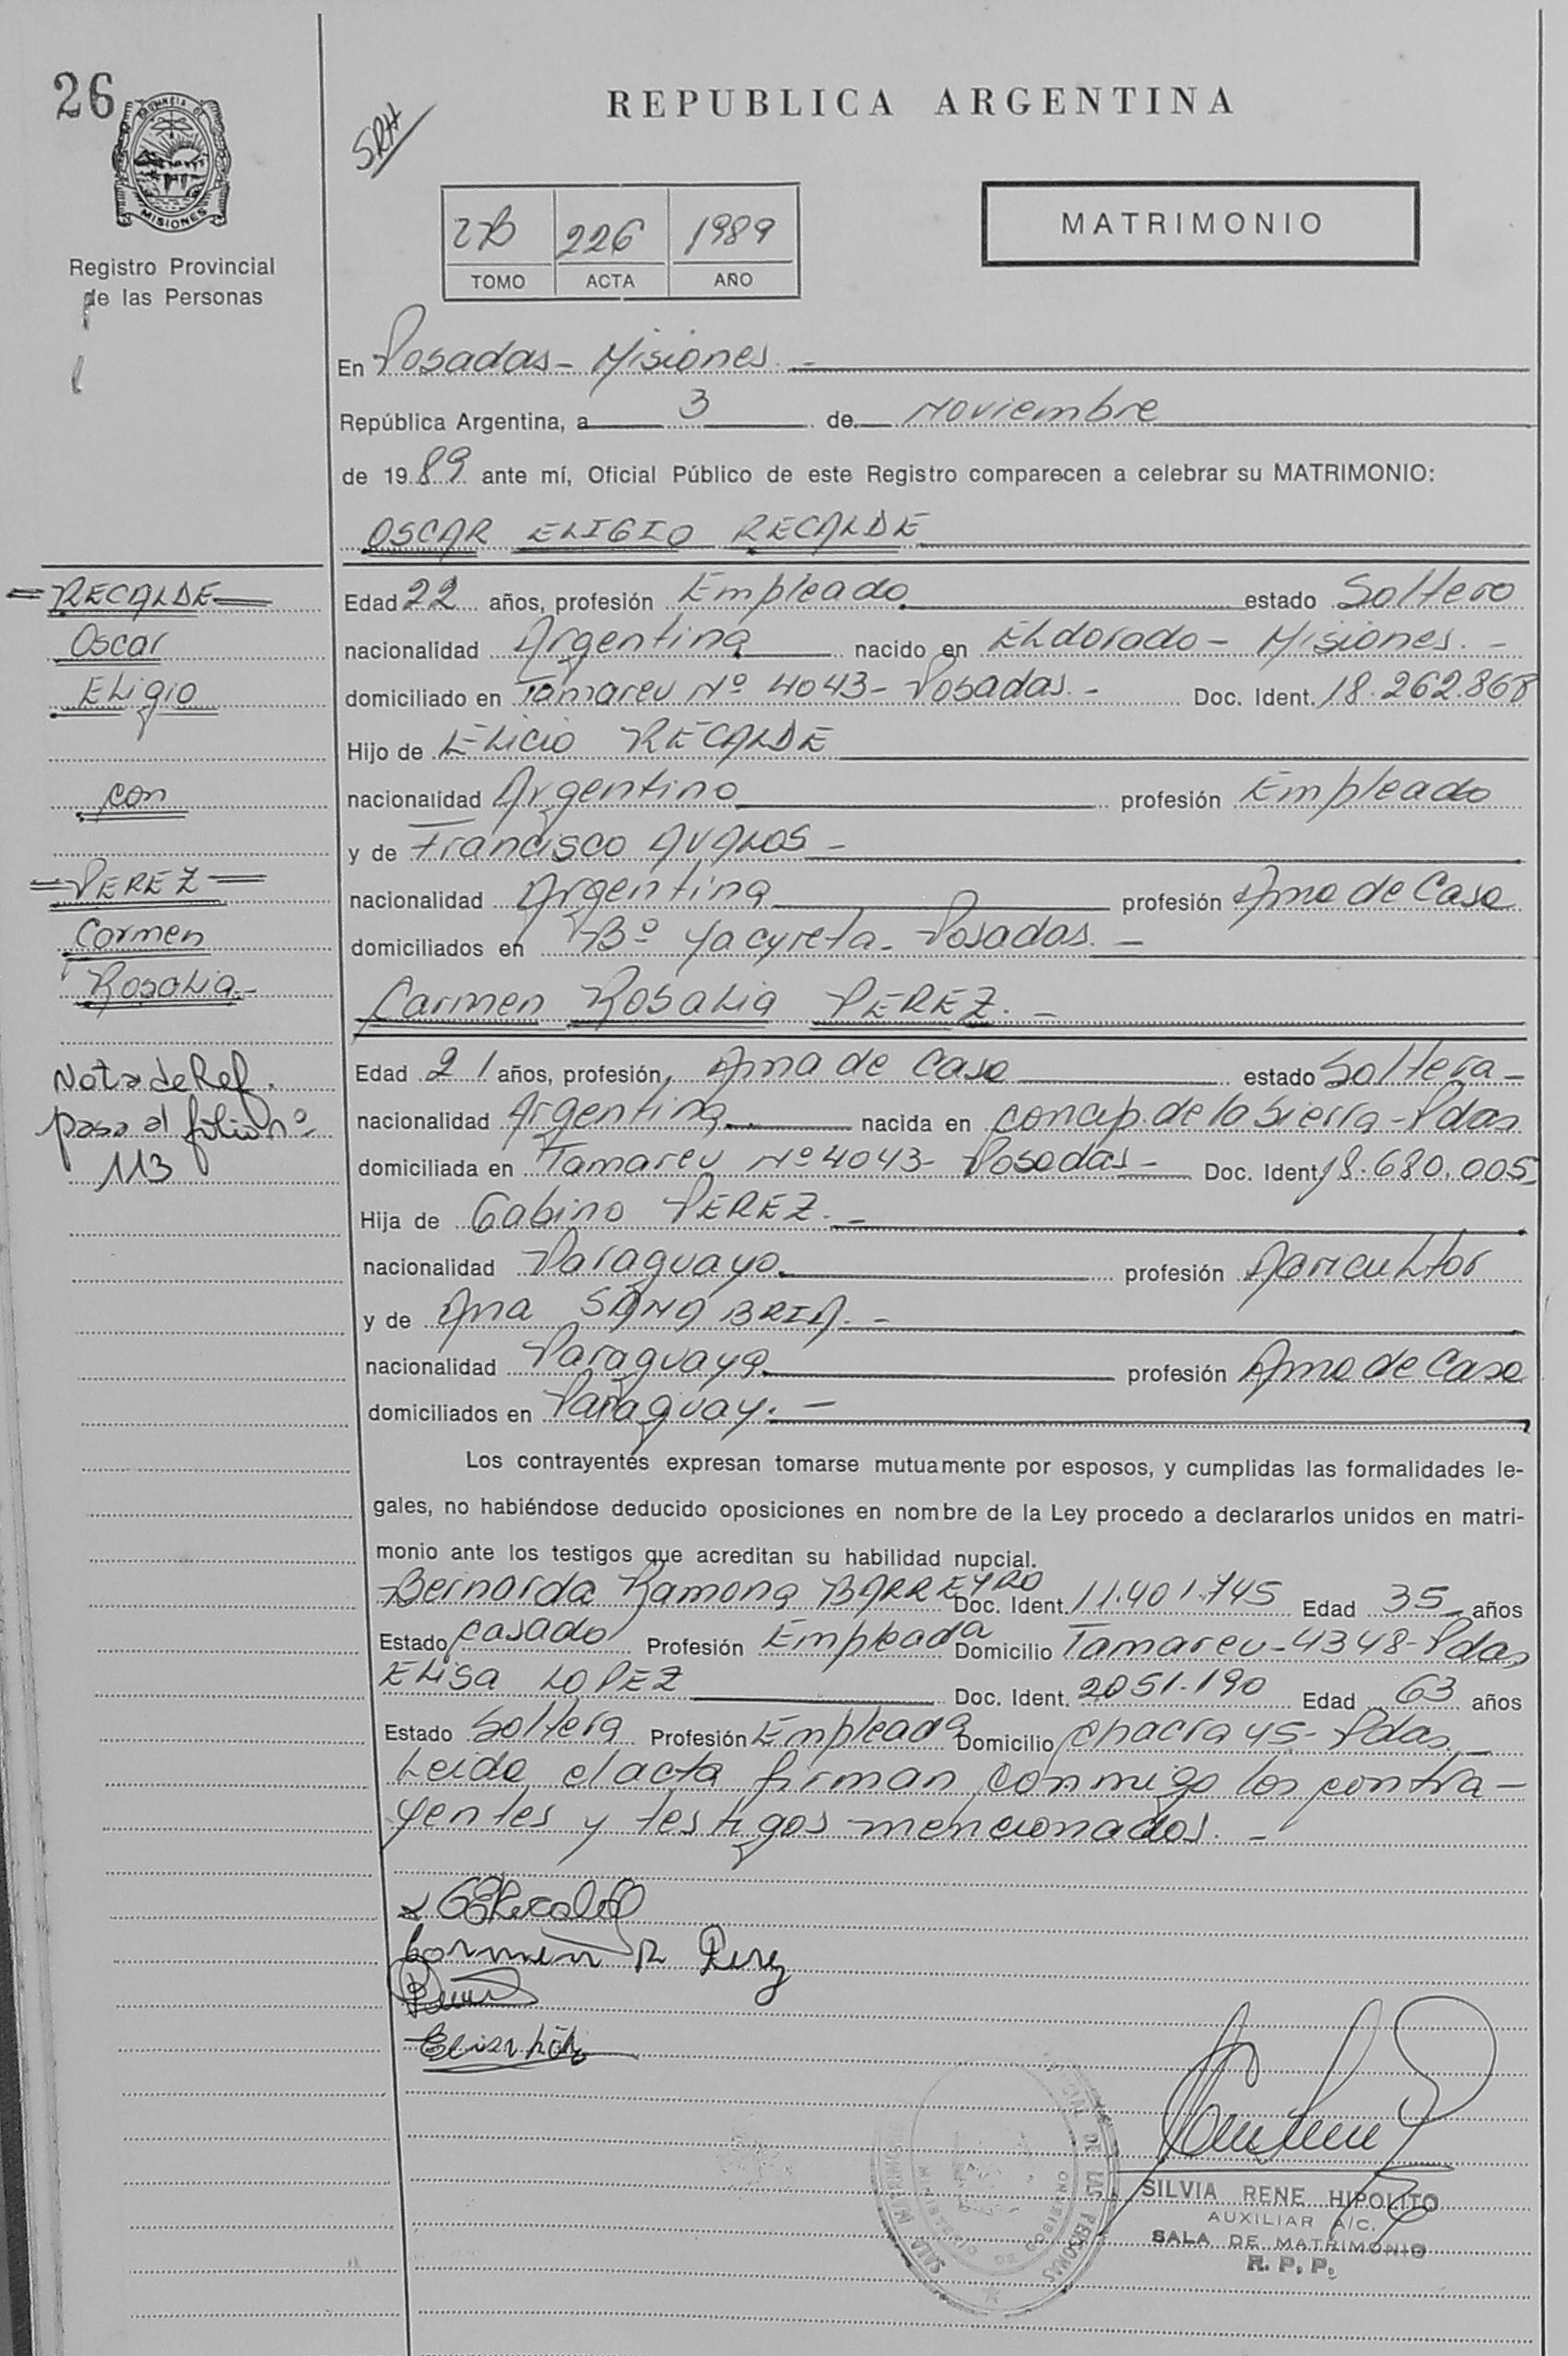 26
PROVINCIA DE
MISIONES
Registro Provincial
de las Personas
SRH
REPUBLICA ARGENTINA
2B 226 1989
TOMO ACTA AÑO
MATRIMONIO
En Posadas - Misiones. -
República Argentina, a 3 de Noviembre
de 19 89 ante mí, Oficial Público de este Registro comparecen a celebrar su MATRIMONIO:
OSCAR ELIGIO RECALDE
= RECALDE =
Oscar
Eligio
con
= PEREZ =
Carmen
Rosalia. -
Nota de Ref.
pasa al folio nº
113
Edad 22 años, profesión Empleado estado Soltero
nacionalidad Argentina nacido en Eldorado - Misiones. -
domiciliado en Tamareu Nº 4043 - Posadas. - Doc. Ident. 18.262.868
Hijo de Elicio RECALDE
nacionalidad Argentino profesión Empleado
y de Francisco AVALOS -
nacionalidad Argentina profesión Ama de Casa
domiciliados en Bº Yacyreta - Posadas. -
Carmen Rosalia PEREZ. -
Edad 21 años, profesión, Ama de Casa estado Soltera -
nacionalidad Argentina. nacida en Concep. de la Sierra - Pdas
domiciliada en Tamareu Nº 4043 - Posadas - Doc. Ident. 18.680.005
Hija de Gabino PEREZ. -
nacionalidad Paraguayo profesión Agricultor
y de Ana SANABRIA. -
nacionalidad Paraguaya profesión Ama de Casa
domiciliados en Paraguay. -
Los contrayentes expresan tomarse mutuamente por esposos, y cumplidas las formalidades le-
gales, no habiéndose deducido oposiciones en nombre de la Ley procedo a declararlos unidos en matri-
monio ante los testigos que acreditan su habilidad nupcial.
Bernarda Ramona BARREYRO Doc. Ident. 11.401.745 Edad 35 años
Estado casado Profesión Empleada Domicilio Tamareu - 4348 - Pdas
Elisa LOPEZ Doc. Ident. 2051.190 Edad 63 años
Estado Soltera Profesión Empleada Domicilio Chacra 45 - Pdas. -
Leida el acta firman conmigo los contra-
yentes y testigos mencionados. -
Recalde
Carmen R Perez
Elisa
SILVIA RENE HIPOLITO
AUXILIAR A/C.
SALA DE MATRIMONIO
R. P. P.
DE LAS PERSONAS
SALA MATRIMONIO
MINISTERIO DE GOBIERNO